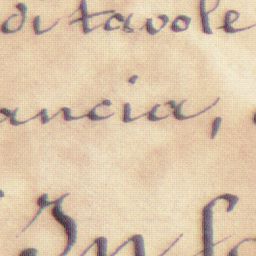 di tavole
ancia,
In fo